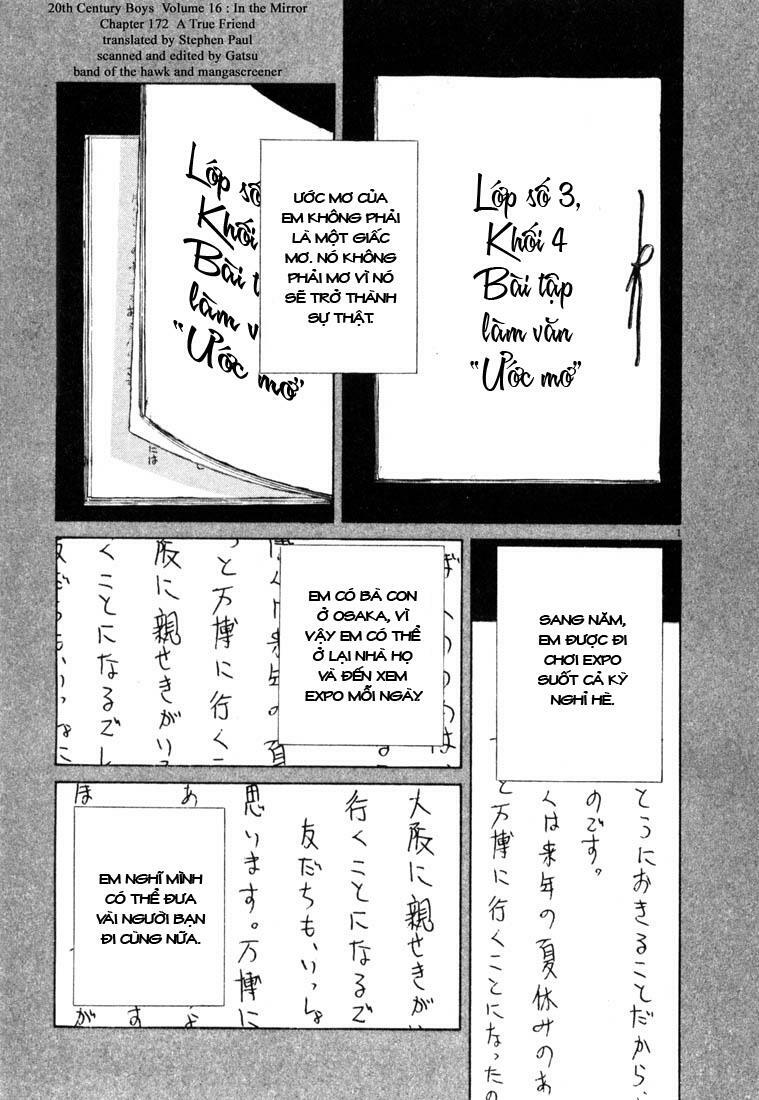 20th Century Boys Volume 16 : In the Mirror
Chapter 172 A True Friend
translated by Stephen Paul
scanned and edited by Gatsu
band of the hawk and mangascreener
Lớp số 3,
Khối 4
Bài tập
làm văn
"Ước mơ"
Lớp số
Khối
Bài
làm v
"Ước mơ"
ƯỚC MƠ CỦA
EM KHÔNG PHẢI
LÀ MỘT GIẤC
MƠ. NÓ KHÔNG
PHẢI MƠ VÌ NÓ
SẼ TRỞ THÀNH
SỰ THẬT.
1
SANG NĂM,
EM ĐƯỢC ĐI
CHƠI EXPO
SUỐT CẢ KỲ
NGHỈ HÈ.
とうにおきることだから、
のです。
くは来年の夏休みのあ
と万博に行くことになったの
EM CÓ BÀ CON
Ở OSAKA, VÌ
VẬY EM CÓ THỂ
Ở LẠI NHÀ HỌ
VÀ ĐẾN XEM
EXPO MỖI NGÀY.
っと万博に行く
阪に親せきがい
くことになるで
大阪に親せきがい
行くことになるで
友だちも、いっしょ
思います。万博に
EM NGHĨ MÌNH
CÓ THỂ ĐƯA
VÀI NGƯỜI BẠN
ĐI CÙNG NỮA.